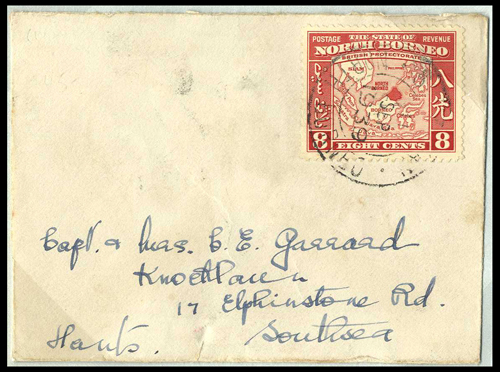 POSTAGE THE STATE OF REVENUE
NORTH BORNEO
BRITISH PROTECTORATE
八先
8 EIGHT CENTS 8
Capt. & Mrs. C. E. Garraard
17 Elphinstone Rd.
Hants. Southsea